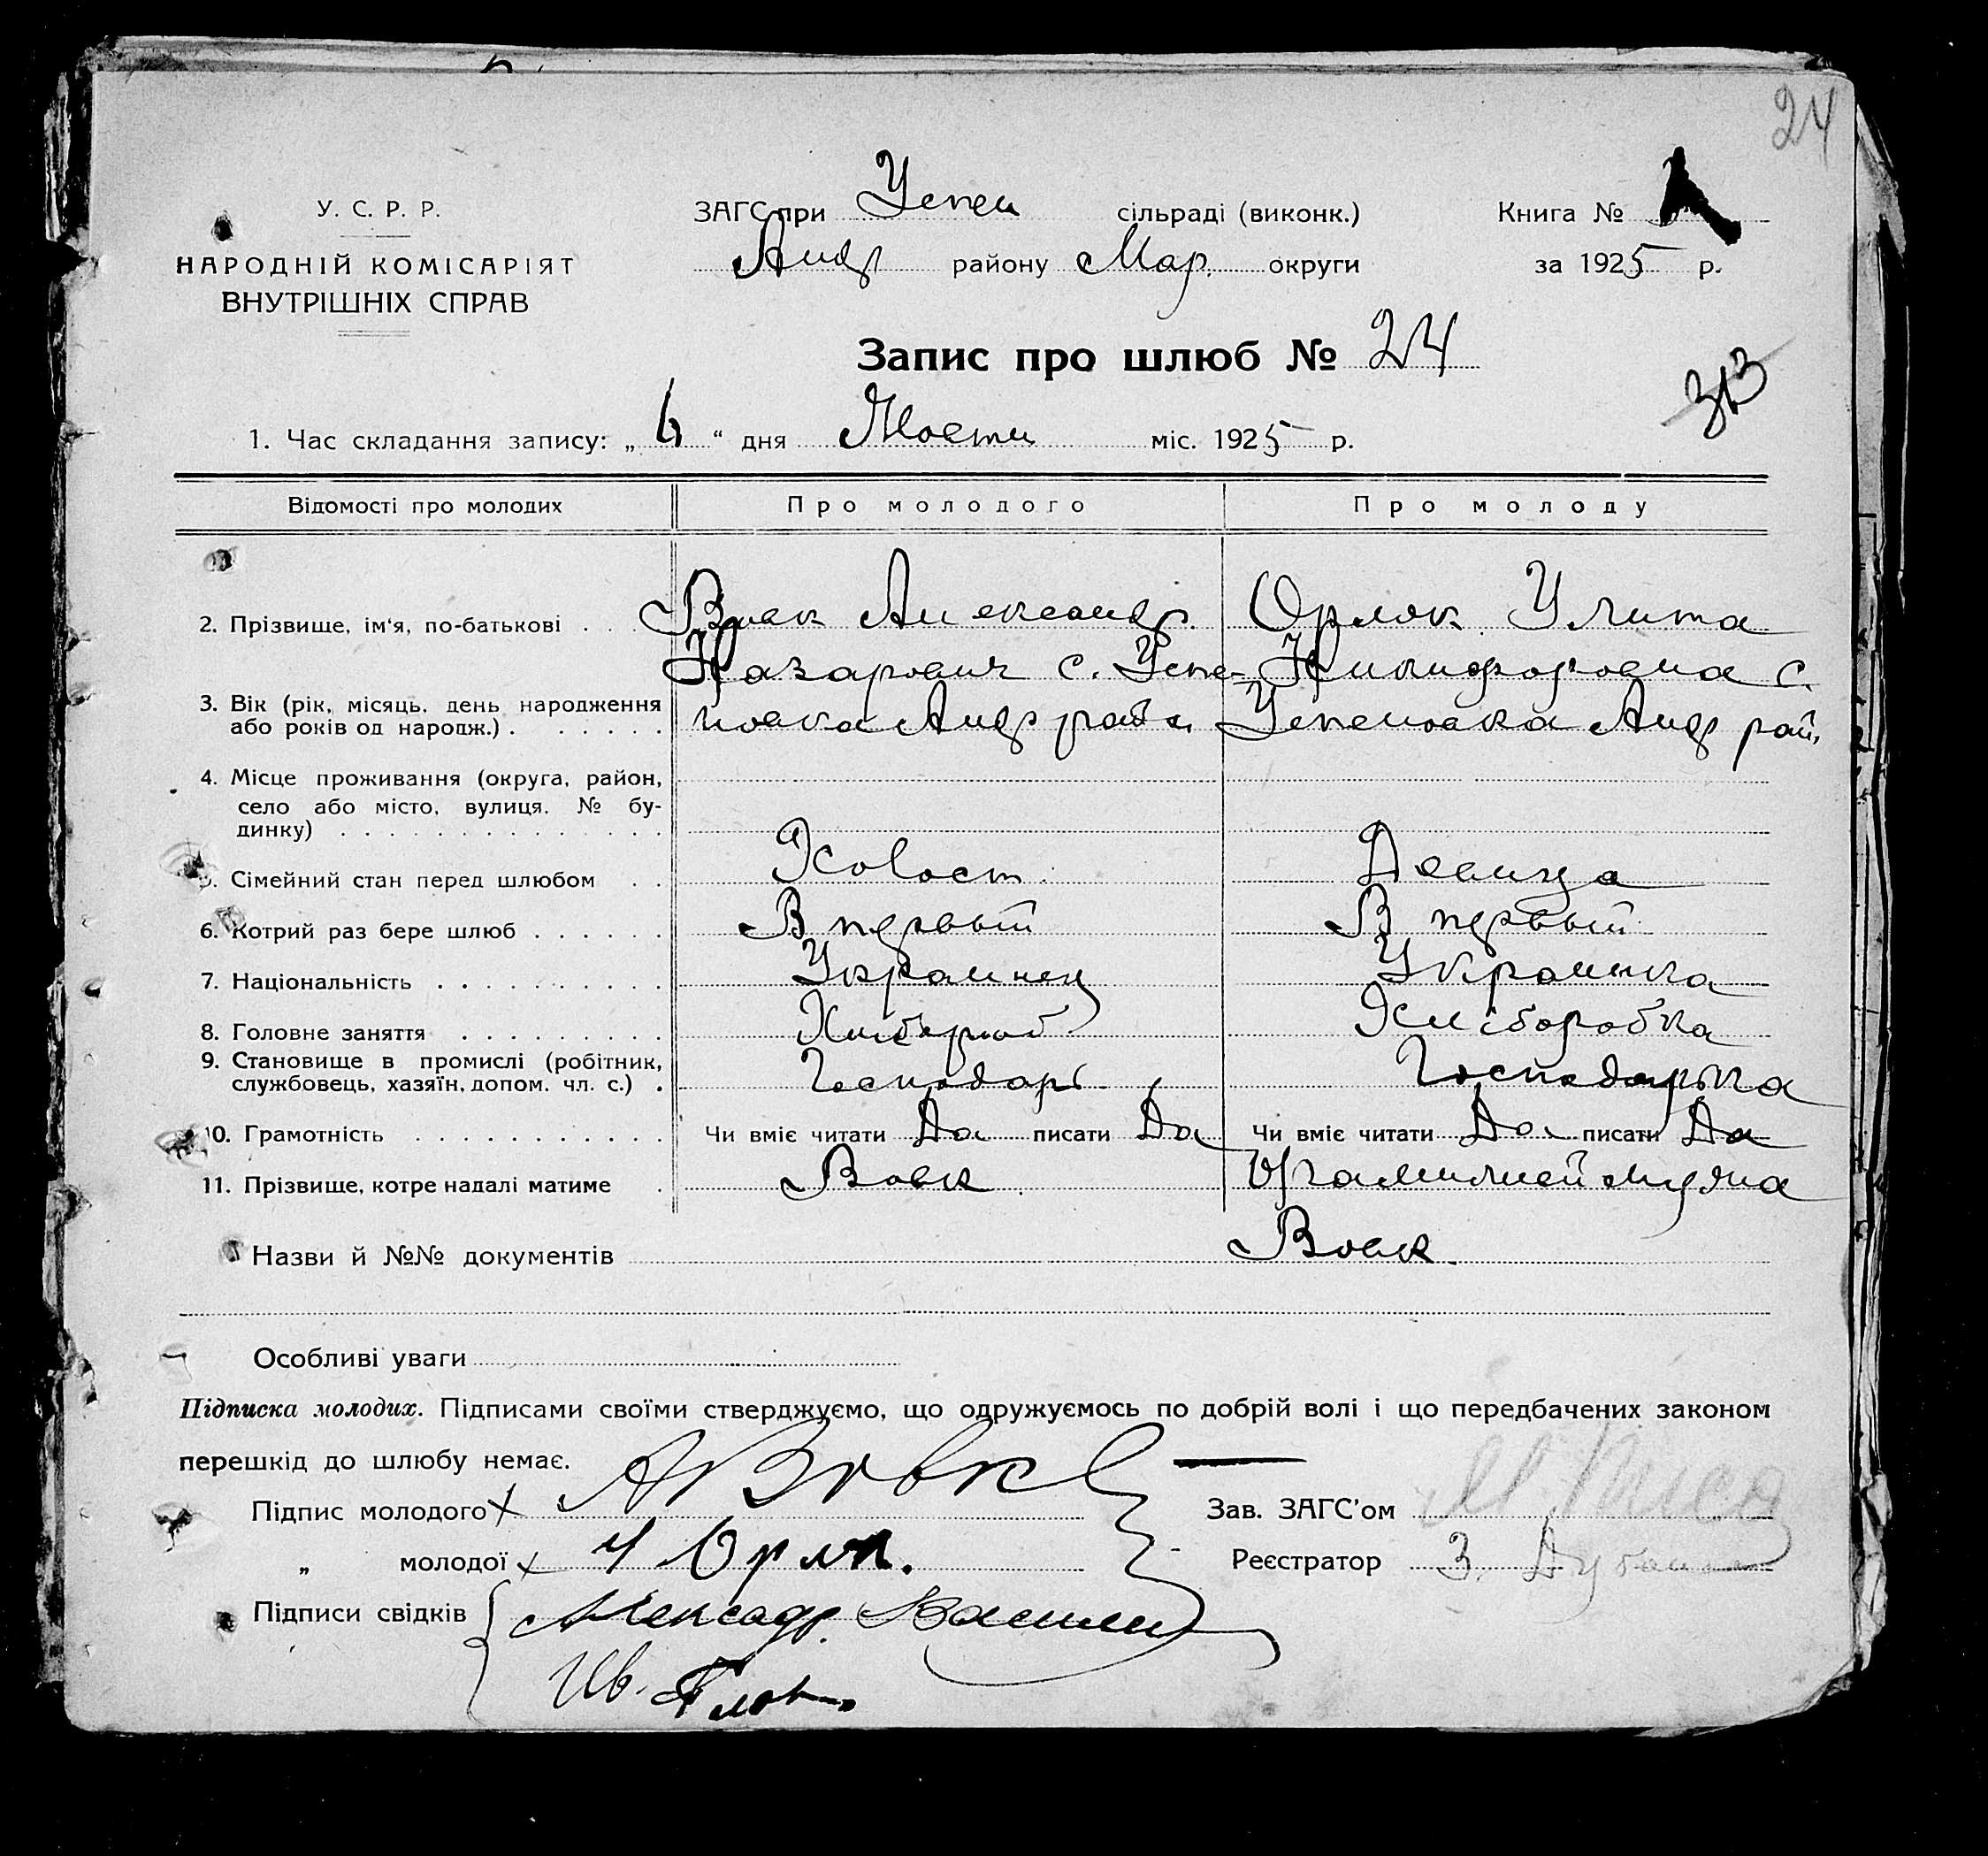 24
У. С. Р. Р.
НАРОДНІЙ КОМІСАРІЯТ
ВНУТРІШНІХ СПРАВ
ЗАГС при Успен сільраді (виконк.)
Андр району Мар. округи
Книга №
за 1925 р.
Запис про шлюб № 24
313
1. Час складання запису: „ 6 “ дня міс. 1925 р.
Відомості про молодих Про молодого Про молоду
2. Прізвище, ім'я, по-батькові . . Вовк Александр Орлюк Улита
Назарович с. Успе- Никифоровна с.
3. Вік (рік, місяць, день народження
або років од народж.) . . . . . . новка Андр района Успеновка Андр рай,
4. Місце проживання (округа, район,
село або місто, вулиця, № бу-
динку) . . . . . . . . . . . . . .
5. Сімейний стан перед шлюбом . . Холост. Девица
6. Котрий раз бере шлюб . . . . . . В первый В первый
7. Національність . . . . . . . . . . Украинец Украинка
8. Головне заняття . . . . . . . . . Хлібороб Хліборобка
9. Становище в промислі (робітник,
службовець, хазяїн, допом. чл. с.) . Господарь Господарька
10. Грамотність . . . . . . . . . . . Чи вміє читати Да писати Да Чи вміє читати Да писати Да
11. Прізвище, котре надалі матиме . Вовк фамилией мужа
Назви й №№ документів Вовк
Особливі уваги
Підписка молодих. Підписами своїми стверджуємо, що одружуємось по добрій волі і що передбачених законом
перешкід до шлюбу немає.
Підпис молодого х А Вовк Зав. ЗАГС'ом
„ молодої х У Орлк. Реєстратор З.
Підписи свідків Александр
Ив.